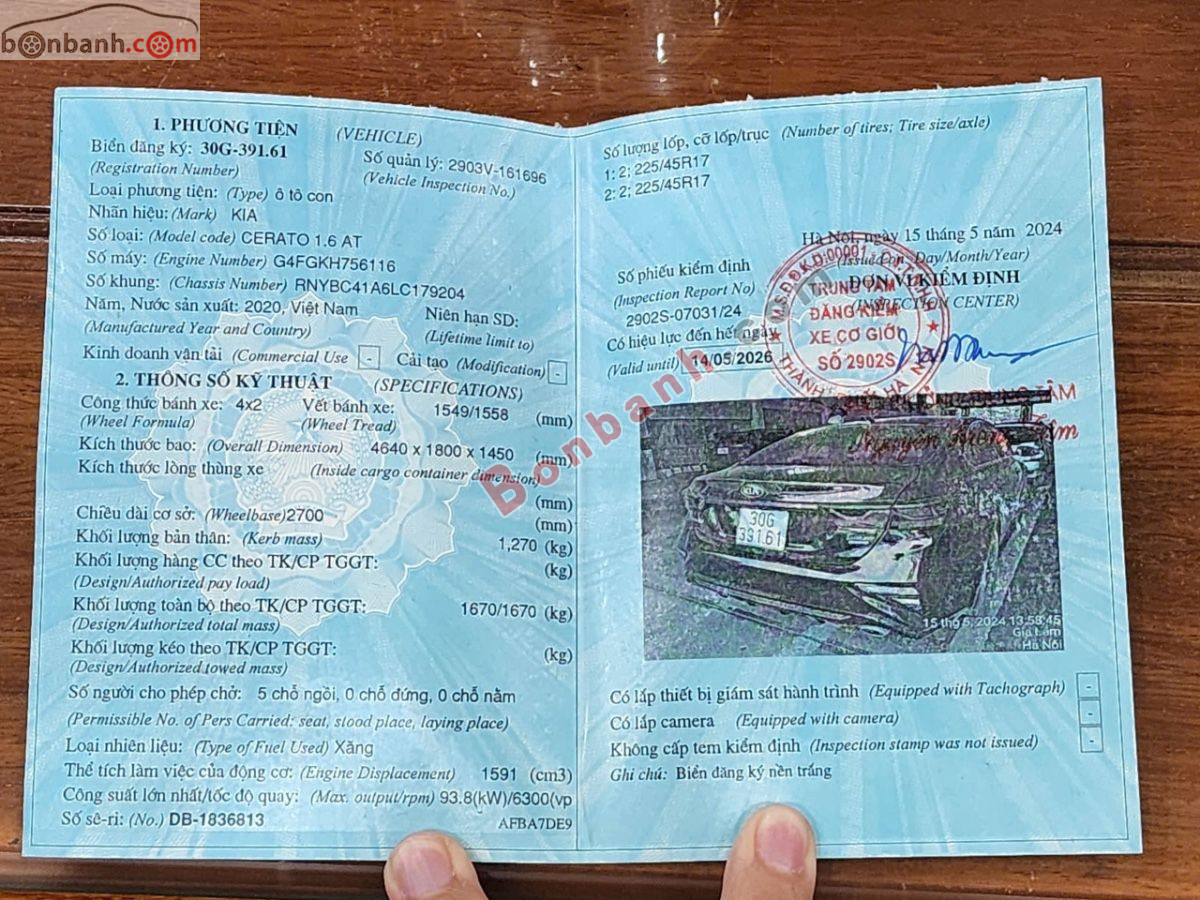 bonbanh.com
1. PHƯƠNG TIỆN (VEHICLE)
Biển đăng ký: 30G-391.61
Số quản lý: 2903V-161696
(Registration Number)
(Vehicle Inspection No.)
Loại phương tiện: (Type) ô tô con
Nhãn hiệu: (Mark) KIA
Số loại: (Model code) CERATO 1.6 AT
Số máy: (Engine Number) G4FGKH756116
Số khung: (Chassis Number) RNYBC41A6LC179204
Năm, Nước sản xuất: 2020, Việt Nam Niên hạn SD:
(Manufactured Year and Country) (Lifetime limit to)
Kinh doanh vận tải (Commercial Use - Cải tạo (Modification) -
2. THÔNG SỐ KỸ THUẬT (SPECIFICATIONS)
Công thức bánh xe: 4x2 Vết bánh xe: 1549/1558 (mm)
(Wheel Formula) (Wheel Tread)
Kích thước bao: (Overall Dimension) 4640 x 1800 x 1450 (mm)
Kích thước lòng thùng xe (Inside cargo container dimension)
(mm)
Chiều dài cơ sở: (Wheelbase)2700 (mm)
Khối lượng bản thân: (Kerb mass) 1,270 (kg)
Khối lượng hàng CC theo TK/CP TGGT: (kg)
(Design/Authorized pay load)
Khối lượng toàn bộ theo TK/CP TGGT: 1670/1670 (kg)
(Design/Authorized total mass)
Khối lượng kéo theo TK/CP TGGT: (kg)
(Design/Authorized towed mass)
Số người cho phép chở: 5 chỗ ngồi, 0 chỗ đứng, 0 chỗ nằm
(Permissible No. of Pers Carried: seat, stood place, laying place)
Loại nhiên liệu: (Type of Fuel Used) Xăng
Thể tích làm việc của động cơ: (Engine Displacement) 1591 (cm3)
Công suất lớn nhất/tốc độ quay: (Max. output/rpm) 93.8(kW)/6300(vp
Số sê-ri: (No.) DB-1836813 AFBA7DE9
Số lượng lốp, cỡ lốp/trục (Number of tires; Tire size/axle)
1: 2; 225/45R17
2: 2; 225/45R17
Hà Nội, ngày 15 tháng 5 năm 2024
(Issued on: Day/Month/Year)
Số phiếu kiểm định
ĐƠN VỊ KIỂM ĐỊNH
(Inspection Report No)
(INSPECTION CENTER)
2902S-07031/24
Có hiệu lực đến hết ngày
(Valid until) 14/05/2026
TRUNG TÂM
ĐĂNG KIỂM
XE CƠ GIỚI
SỐ 2902S
Bonbanh
KIA
30G
391.61
15 thg 5, 2024 13:58:45
Gia Lâm
Hà Nội
Có lắp thiết bị giám sát hành trình (Equipped with Tachograph) -
Có lắp camera (Equipped with camera) -
Không cấp tem kiểm định (Inspection stamp was not issued) -
Ghi chú: Biển đăng ký nền trắng